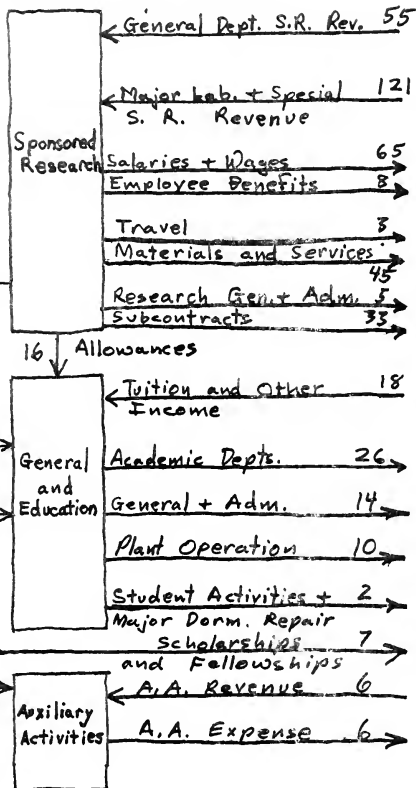 General Dept. S.R. Rev. 55
Major Lab. + Special 121
S. R. Revenue
Sponsored
Research
Salaries + Wages 65
Employee Benefits 8
Travel 3
Materials and Services
45
Research Gen. + Adm. 5
Subcontracts 33
16 Allowances
Tuition and Other 18
Income
General
and
Education
Academic Depts. 26
General + Adm. 14
Plant Operation 10
Student Activities + 2
Major Dorm. Repair
Scholarships 7
and Fellowships
Auxiliary
Activities
A.A. Revenue 6
A.A. Expense 6